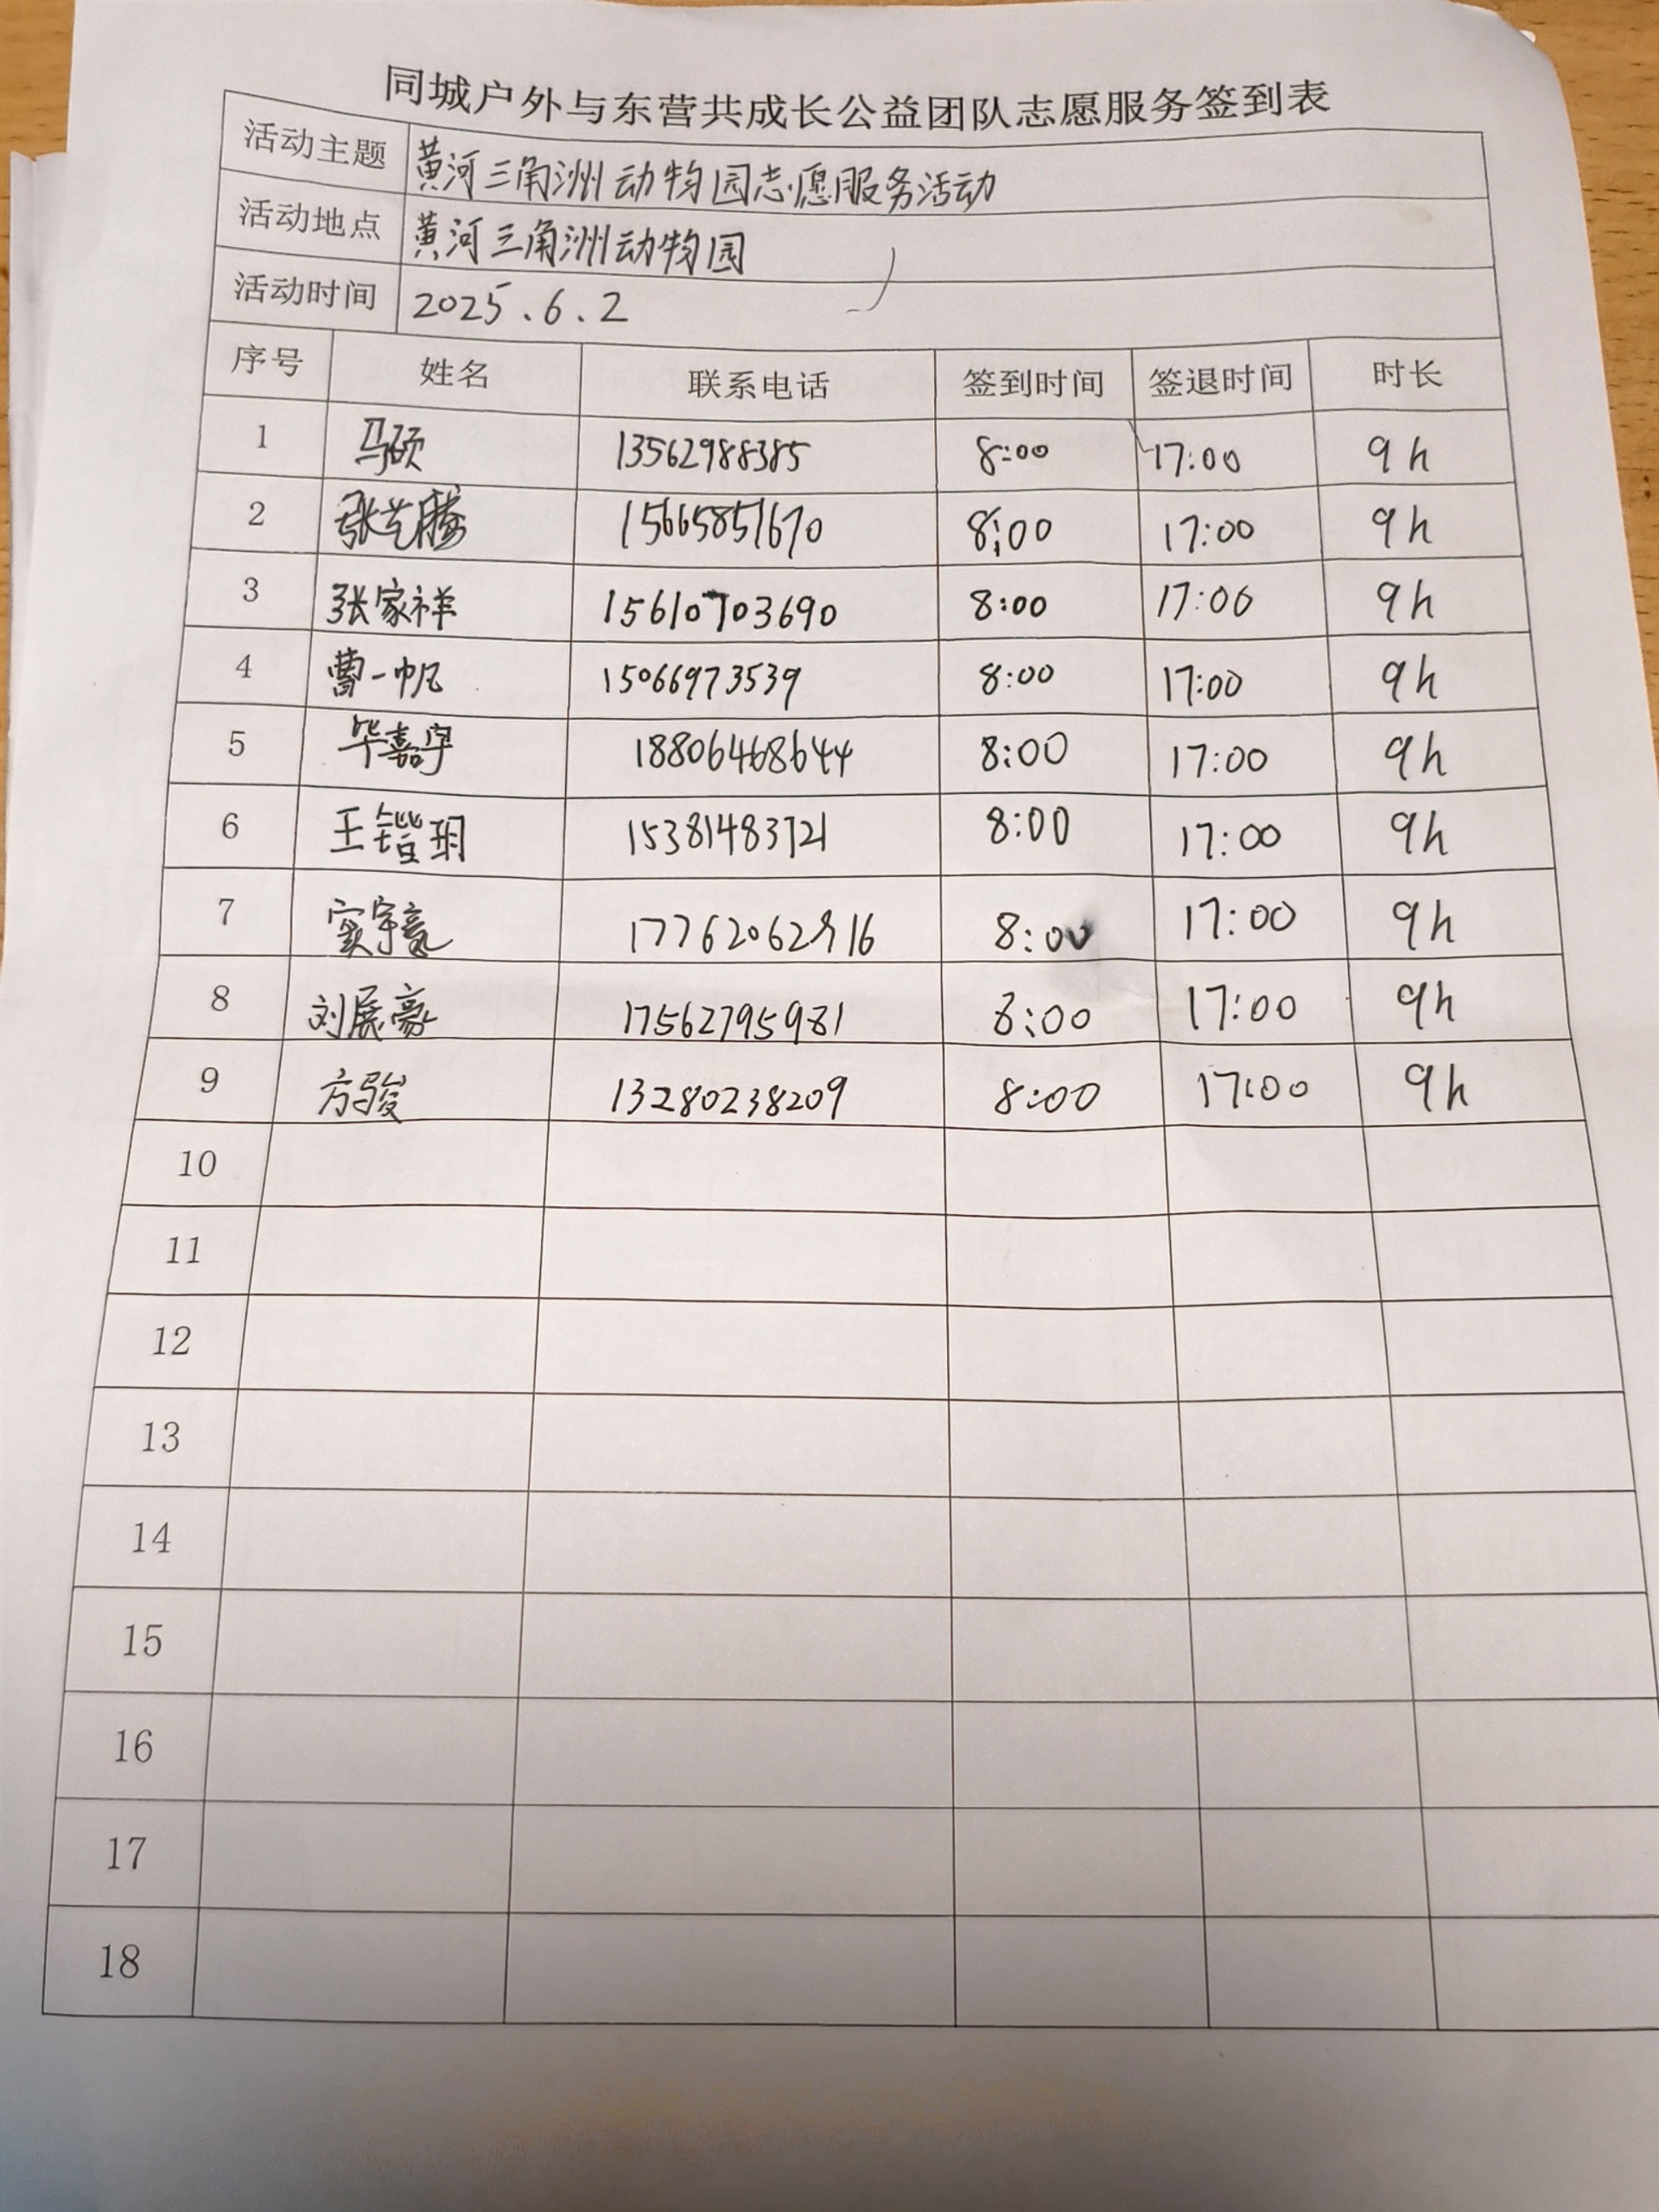 同城户外与东营共成长公益团队志愿服务签到表
活动主题 黄河三角洲动物园志愿服务活动
活动地点 黄河三角洲动物园
活动时间 2025.6.2
序号 姓名 联系电话 签到时间 签退时间 时长
1 马硕 13562988385 8:00 17:00 9h
2 张艺腾 15665851670 8:00 17:00 9h
3 张家祥 15610703690 8:00 17:00 9h
4 曹一帆 15066973539 8:00 17:00 9h
5 毕嘉宇 18806468644 8:00 17:00 9h
6 王锴玥 15381483721 8:00 17:00 9h
7 8:00 17:00 9h
8 刘展豪 17562795981 8:00 17:00 9h
9 方骏 13280238209 8:00 17:00 9h
10
11
12
13
14
15
16
17
18